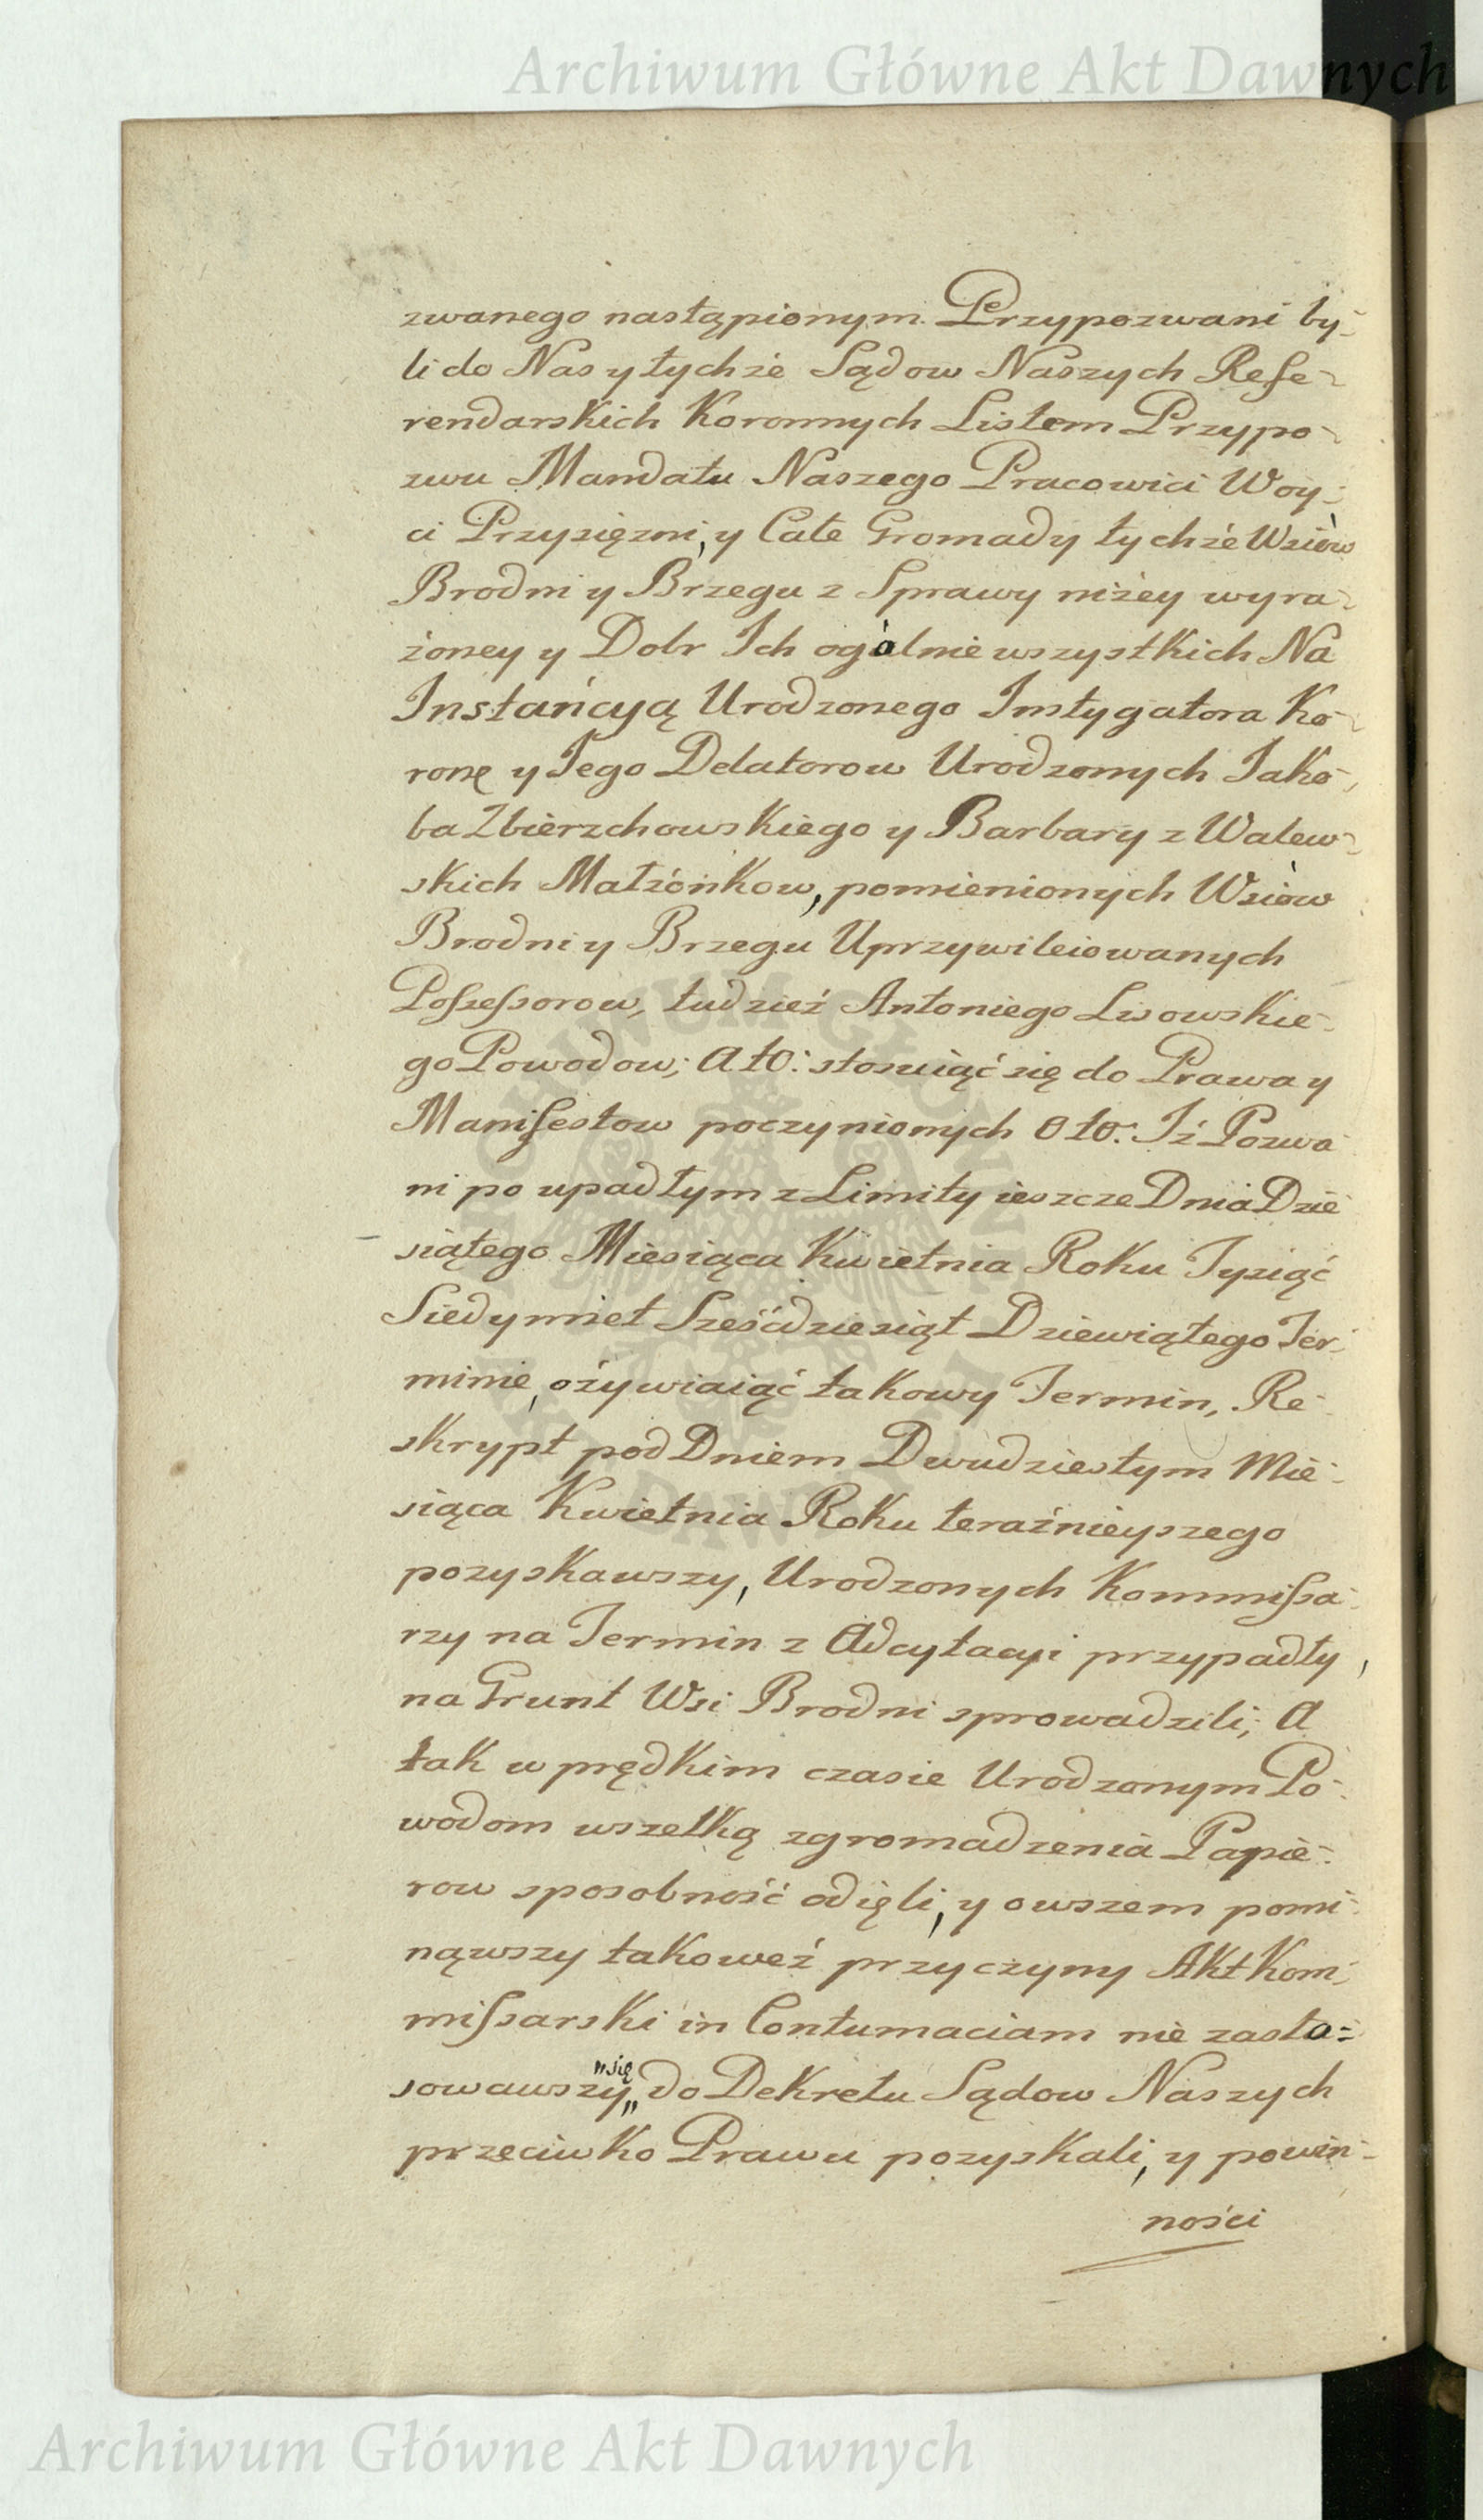 Archiwum Główne Akt Dawnych
zwanego nastąpionym. Przypozwani by-
li do Nas y tychże Sądow Naszych Refe-
rendarskich Koronnych Listem Przypo-
zwu Mandatu Naszego Pracowici Woy-
ci Przysięzni, y Całe Gromady tychże Wsiòw
Brodni y Brzegu z Sprawy niżey wyra-
żoney y Dobr Ich ogòlnie wszystkich Na
Instańcyą Urodzonego Instygatora Ko-
ronę y Jego Delatorow Urodzonych Jako-
ba Zbierzchowskiego y Barbary z Walew-
skich Małżonkow, pomienionych Wsiòw
Brodni y Brzegu Uprzywileiowanych
Possessorow, tudzież Antoniego Lisowskie-
go Powodow; A to: stosuiąć się do Prawa y
Manifestow poczynionych O to: Iż Pozwa-
ni po upadłym z Limity ieszcze Dnia Dzie-
siątego Miesiąca Kwietnia Roku Tysiąć
Siedymset Sześćdziesiąt Dziewiątego Ter-
minie, ożywiaiąć takowy Termin, Re-
skrypt pod Dniem Dwudziestym Mie-
siąca Kwietnia Roku teraźnieyszego
pozyskawszy, Urodzonych Kommissa-
rzy na Termin z Adcytacyi przypadły,
na Grunt Wsi Brodni sprowadzili; A
tak w prędkim czasie Urodzonym Po-
wodom wszelką zgromadzenia Papie-
row sposobność odięli, y owszem pomi-
nąwszy takoweż przyczyny Akt Kom-
missarski in Contumaciam nie zasto=
sowawszy „się„ do Dekretu Sądow Naszych
przeciwko Prawu pozyskali, y powin-
ności
Archiwum Główne Akt Dawnych